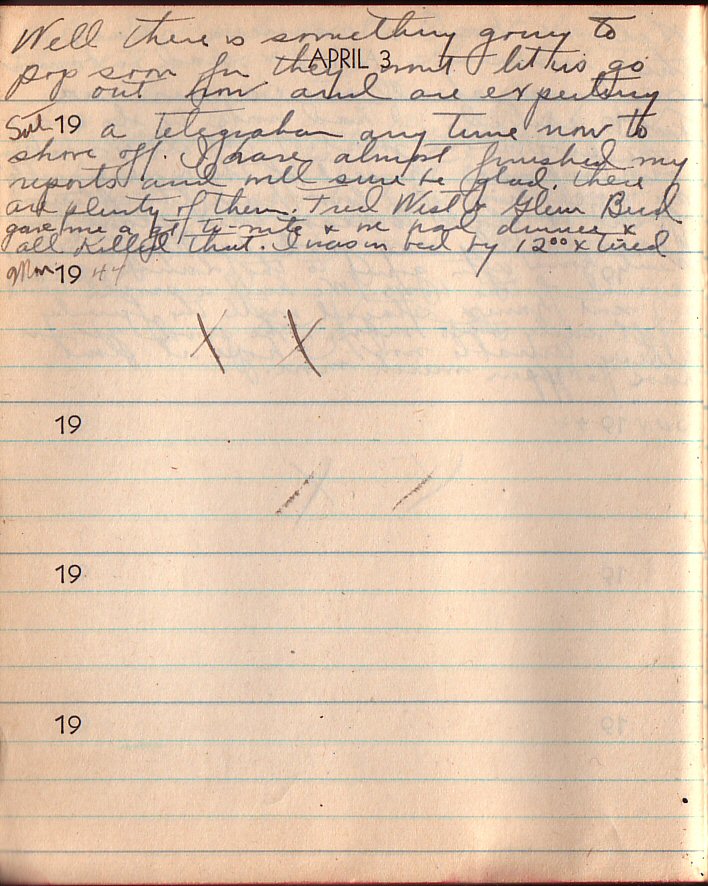 Well there is something going to
APRIL 3
pop soon for they wont let us go
out now and are expecting
Sat 19 a telegraham any time now to
shove off. I have almost finished my
reports and will sure be glad. there
are plenty of them. Fred West & Glenn Bird
gave me a to-nite & we had dinner &
all Killed that. I was in bed by 12 00 & tired
Mon 19 44
X X
19
19
19